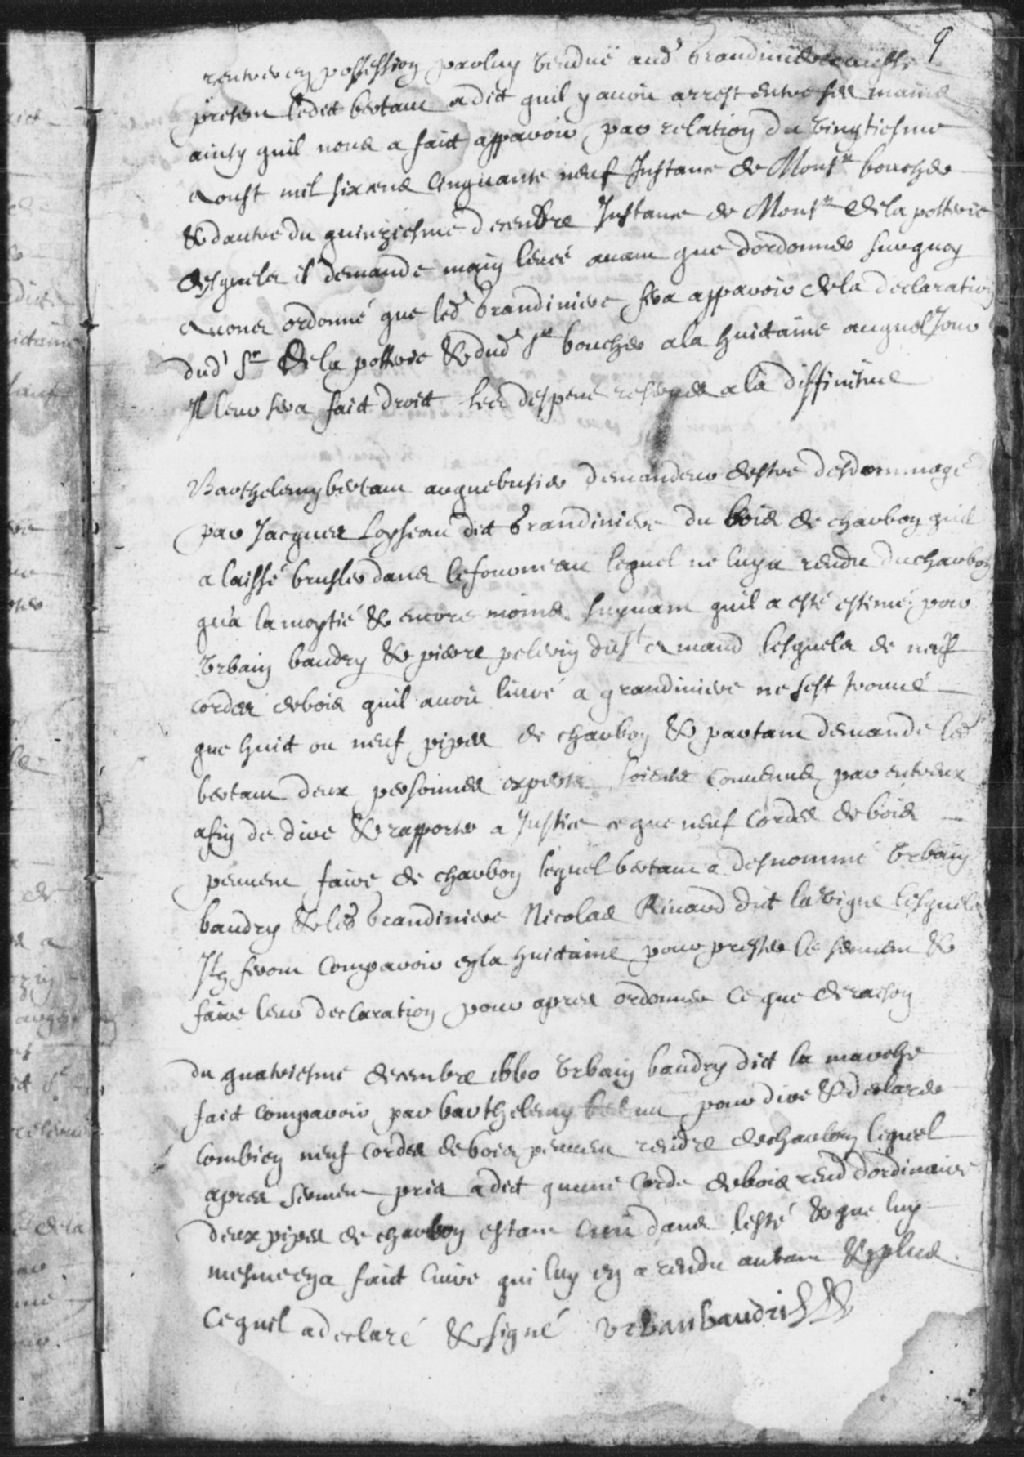 9
rentrer en possession par luy vendue aud grandiniere
present ledit bertam a dict quil y avoit arrest entre ses mains
ainsy quil nous a faict apparoir par relation du vingtiesme
aoust mil six cens cinquante neuf Instance de Monsr boucher
& dautre du quinziesme decembre Instance de Monsr de la potterie
desquels il demande main levée avant que dordonner surquoy
avons ordonné que led grandiniere fera apparoir de la declaration
dud sr de la potterie & dud sr boucher a la huictaine auquel Jour
Il leur sera faict droict les despens reserves a la diffinitive
Barthelemy bertam arquebusier demandeur destre desdommagé
par Jacques Loyseau dit grandiniere du bois de charbon quil
a laissé brusler dans le fourneau lequel ne luy a rendu du charbon
qua la moytié & encore moins suyvant quil a esté estimé par
Urbain baudry & pierre pelerin lesquels de neuf
cordes de bois quil avoit livré a grandiniere ne sest trouvé
que huict ou neuf pipes de charbon & partant demande led
bertam deux personnes expers soient convenus par entreux
afin de dire & rapporter a Justice ce que neuf cordes de bois
peuvent faire de charbon lequel bertam a desnommé Urbain
baudry & led grandiniere Nicolas Rinard dit la vigne lesquels
Ilz feront comparoir en la huictaine pour prester le serment &
faire leur declaration pour apres ordonner ce que de raison
du quatriesme decembre 1660 Urbain baudry dict la marche
faict comparoir par barthelemy bertam pour dire & declarer
combien neuf cordes de bois peuvent rendre de charbon lequel
apres serment pris a dict quune corde de bois rend dordinaire
deux pipes de charbon estant cuit dans lesté & que luy
mesme en a faict cuire qui luy en a rendu autant & plus
ce quil a declaré & signé Urban baudri